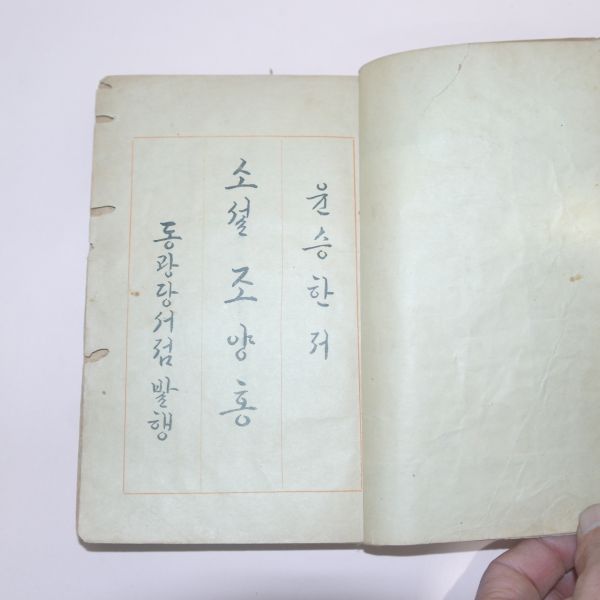 윤승한 저
소설 조양홍
동광당서점 발행